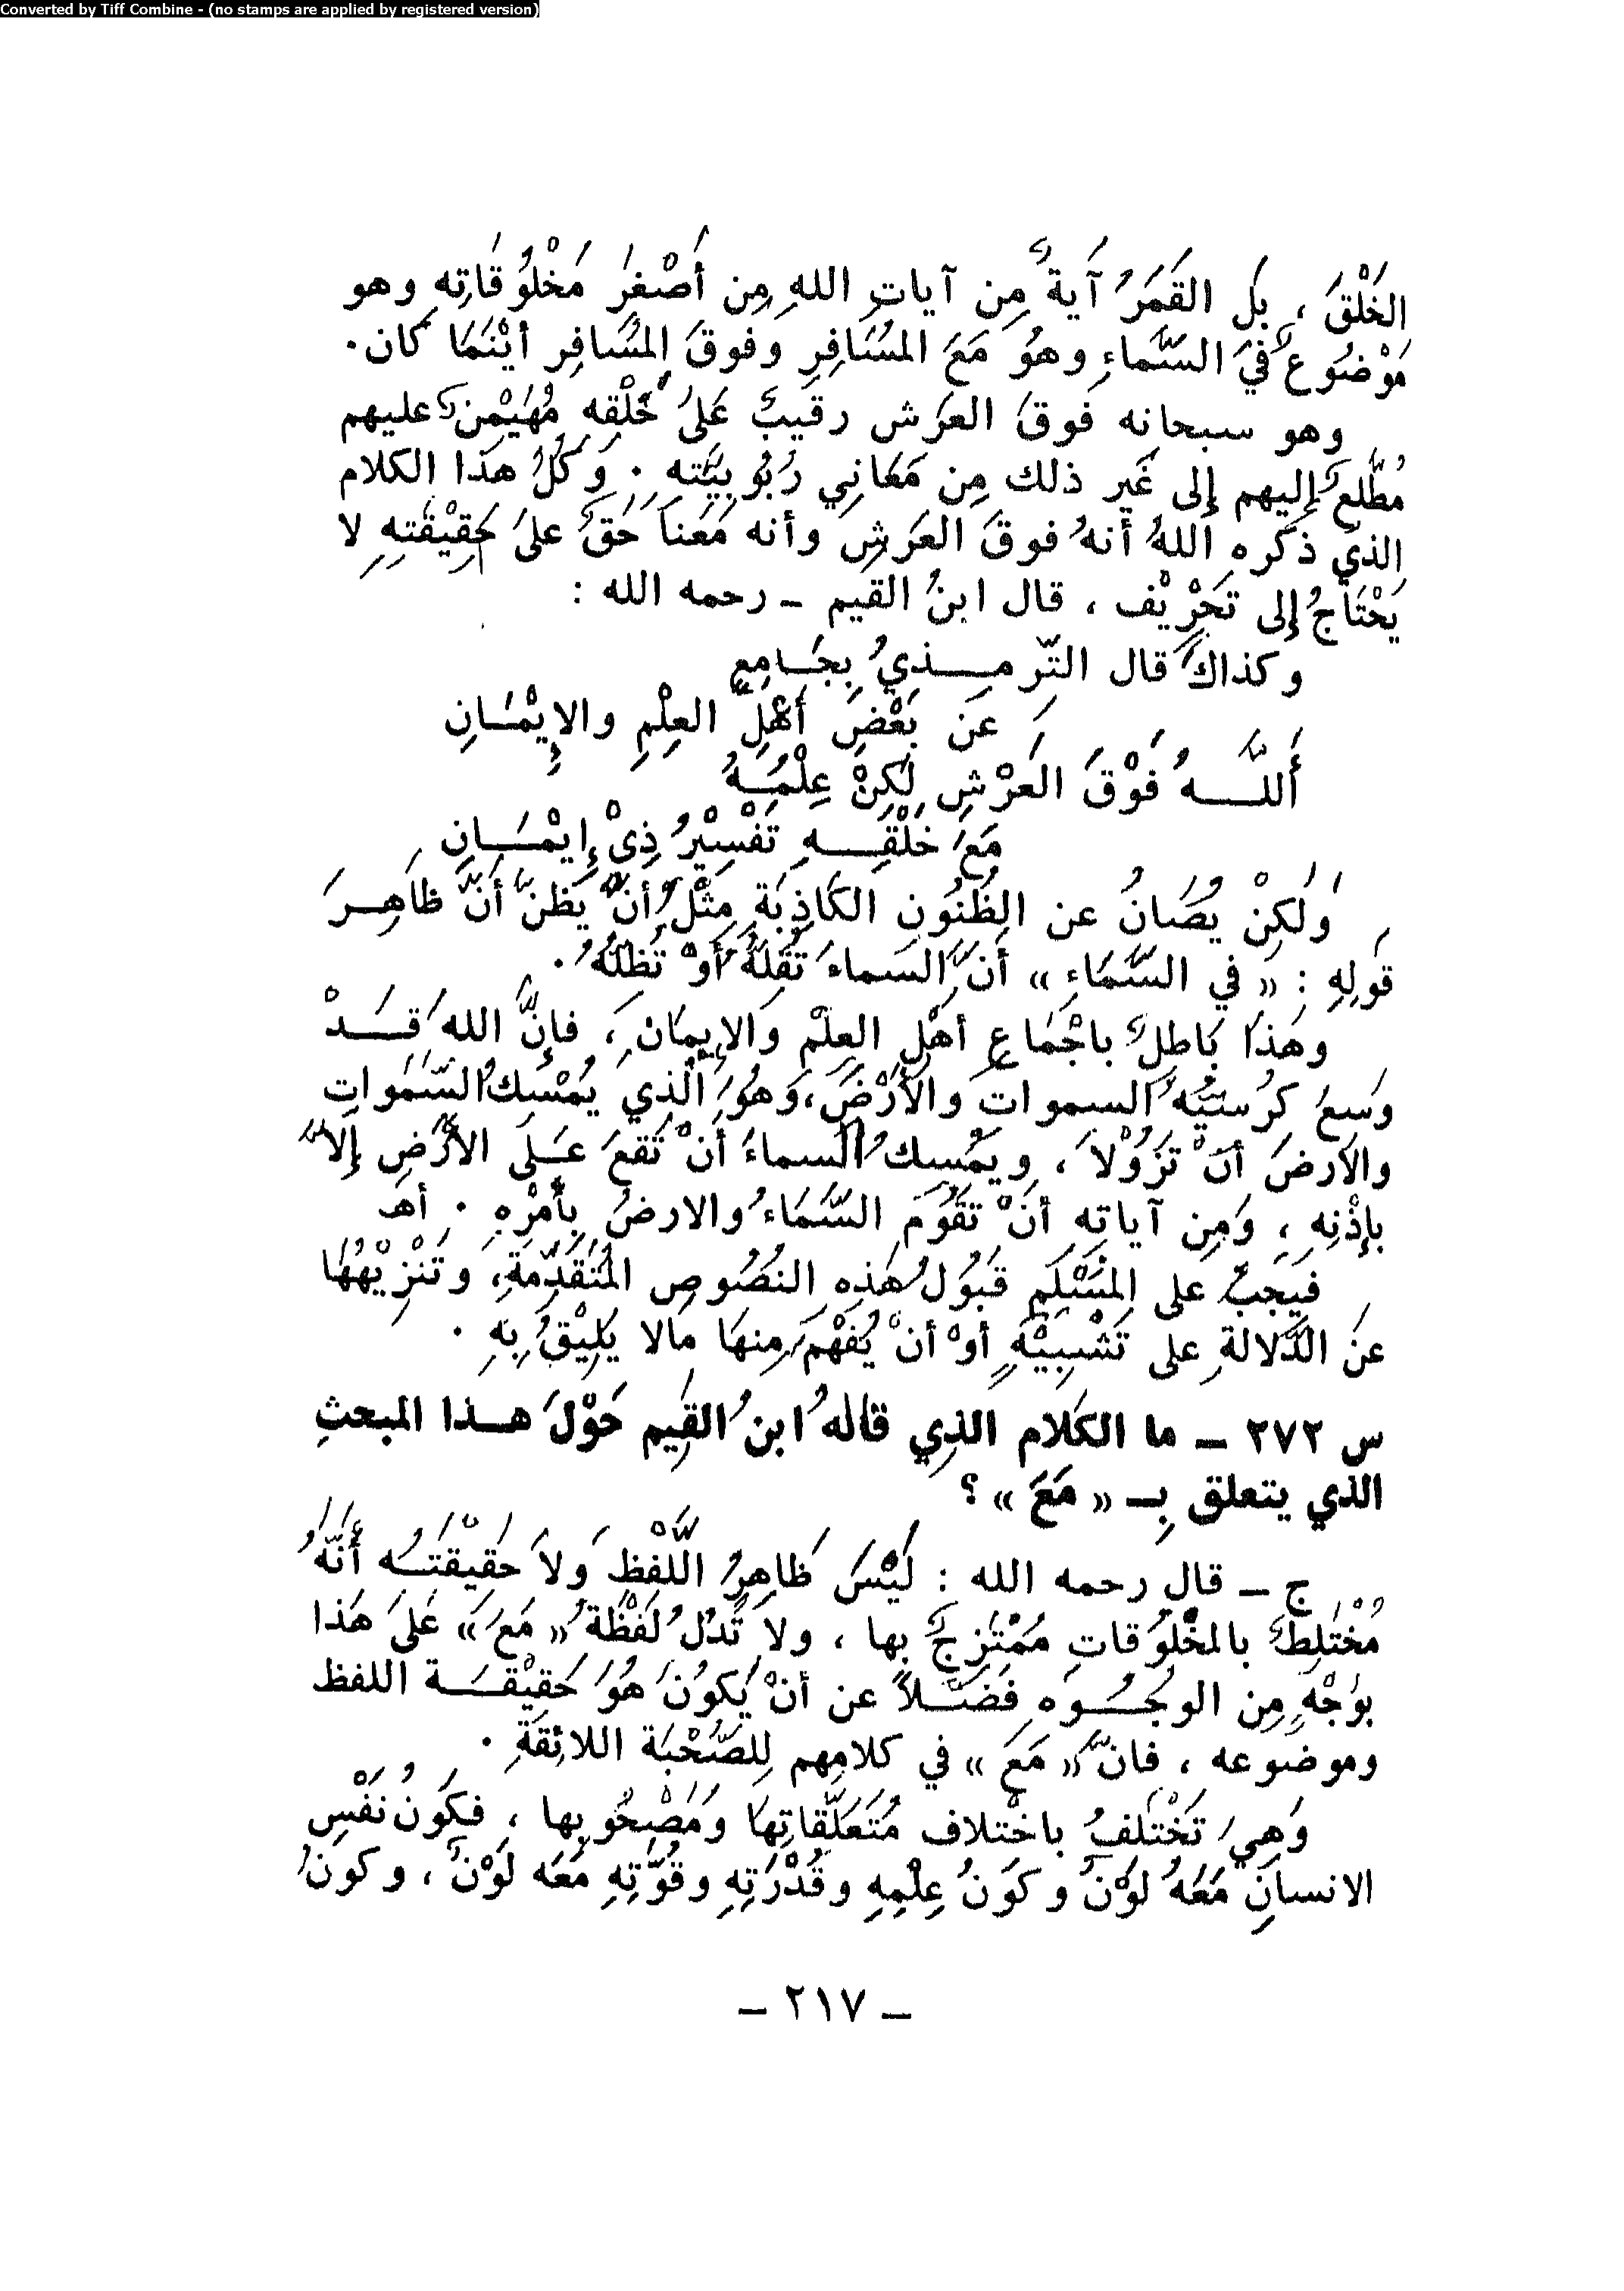 Converted by Tiff Combine - (no stamps are applied by registered version)
الخَلْقَ ، بَل القَمَرُ آيةٌ مِن آياتِ اللهِ مِن أَصْغَرِ مَخْلُوقَاتِهِ وهو
مَوْضُوعٌ في السَّماءِ وهُوَ مَعَ المسَافِرِ وفوقَ المسَافِرِ أيْنَمَا كَان .
وهو سبحانه فَوقَ العَرَش رقيبٌ عَلَى خَلْقِهِ مُهَيْمِنٌ عليهم
مُطَّلِعٌ إليهم إلى غَيرِ ذلك مِن مَعَانِي رُبُوبِيَّتِهِ . وَكُلُّ هذا الكلام
الذي ذَكَره اللهُ أنهُ فوقَ العَرَشِ وأنه مَعَنَا حَقٌ علىَ حَقِيْقَتِهِ لا
يَحْتَاجُ إلى تَحْرِيْف ، قال ابنُ القيم ــ رحمه الله :
وكذاكَ قال التِّرمــذيُ بِجَــامِعٍ
عَن بَعْضِ أَهْلِ العِلْمِ والإِيْمَـانِ
أَللــهُ فَوْقَ العَرْشِ لَكِنْ عِلْمُــهُ
مَعَ خَلْقِــهِ تَفْسِيْرُ ذِيْ إِيْمَــانِ
وَلَكِنْ يُصَانُ عن الظُنُونِ الكَاذِبَةِ مِثْلُ أنْ يَظنَّ أَنَّ ظَاهِــرَ
قَولِهِ : « في السَّمَاءِ » أَنَّ السَماءَ تُقِلُّهُ أَوْ تُظلُّهُ .
وهَذَا بَاطِلٌ باجْمَاعِ أهْلِ العِلْمِ وَالإِيمَانِ ، فإنَّ اللهَ قَــدْ
وَسِعَ كرُسيُّهُ السموات وَالأَرْضَ ، وَهُوَ الَّذي يُمْسِكُ السَّمَوات
والأَرضَ أَنْ تَزُوْلاَ ، ويُمْسِكُ السماءَ أَنْ تَقَعَ عَــلَى الأَرْضِ إلاَّ
بِإذْنِهِ ، وَمِن آياتِهِ أنْ تَقُوْمَ السَّمَاءُ والارضُ بِأَمْرِهِ . أهـ
فيَجَبُ على المُسْلِمِ قَبُوْلُ هَذِهِ النصُوصِ المُتَقَدِّمَةِ ، وتَنْزِيْهُهَا
عنَ الدَّلالَةِ على تَشْبِيْهٍ أوْ أنْ يُفَهْمَ مِنهَا مَالا يَلِيْقُ بِهِ .
س ٢٧٢ ــ ما الكَلام الذِي قالهُ ابنُ القِيم حَوْلَ هــذا المبحثِ
الذي يتعلق بِــ « مَعَ » ؟
ج ــ قال رحمه الله : لَيْسَ ظَاهِرُ اللَّفْظِ وَلاَ حَقِيْقَتــُه أَنَّهُ
مُخْتَلِطٌ بالمخْلُوقاتِ مُمْتَزِجٌ بها ، ولا تَدُلُّ لَفْظَةُ « مَعَ » عَلَى هَذا
بوَجْهٍ مِن الوجُــوهِ فَضَــلاً عن أنْ يَكُوْنَ هُوَ حَقِيْقَــة اللفظ
وموضوعه ، فانَّ « مَعَ » في كلامِهم لِلصُّحْبَة اللائِقَةِ .
وَهِيَ تَخْتَلفُ باخْتلاف مُتَعَلِّقَاتِهَا وَمَصْحُوبِها ، فكَونُ نَفْسِ
الانسانِ مَعَهُ لَوْنٌ وكَونُ عِلْمِهِ وقُدْرَتِهِ وقُوَّتِهِ مَعَه لَوْنٌ ، وكونُ
ــ ٢١٧ ــ